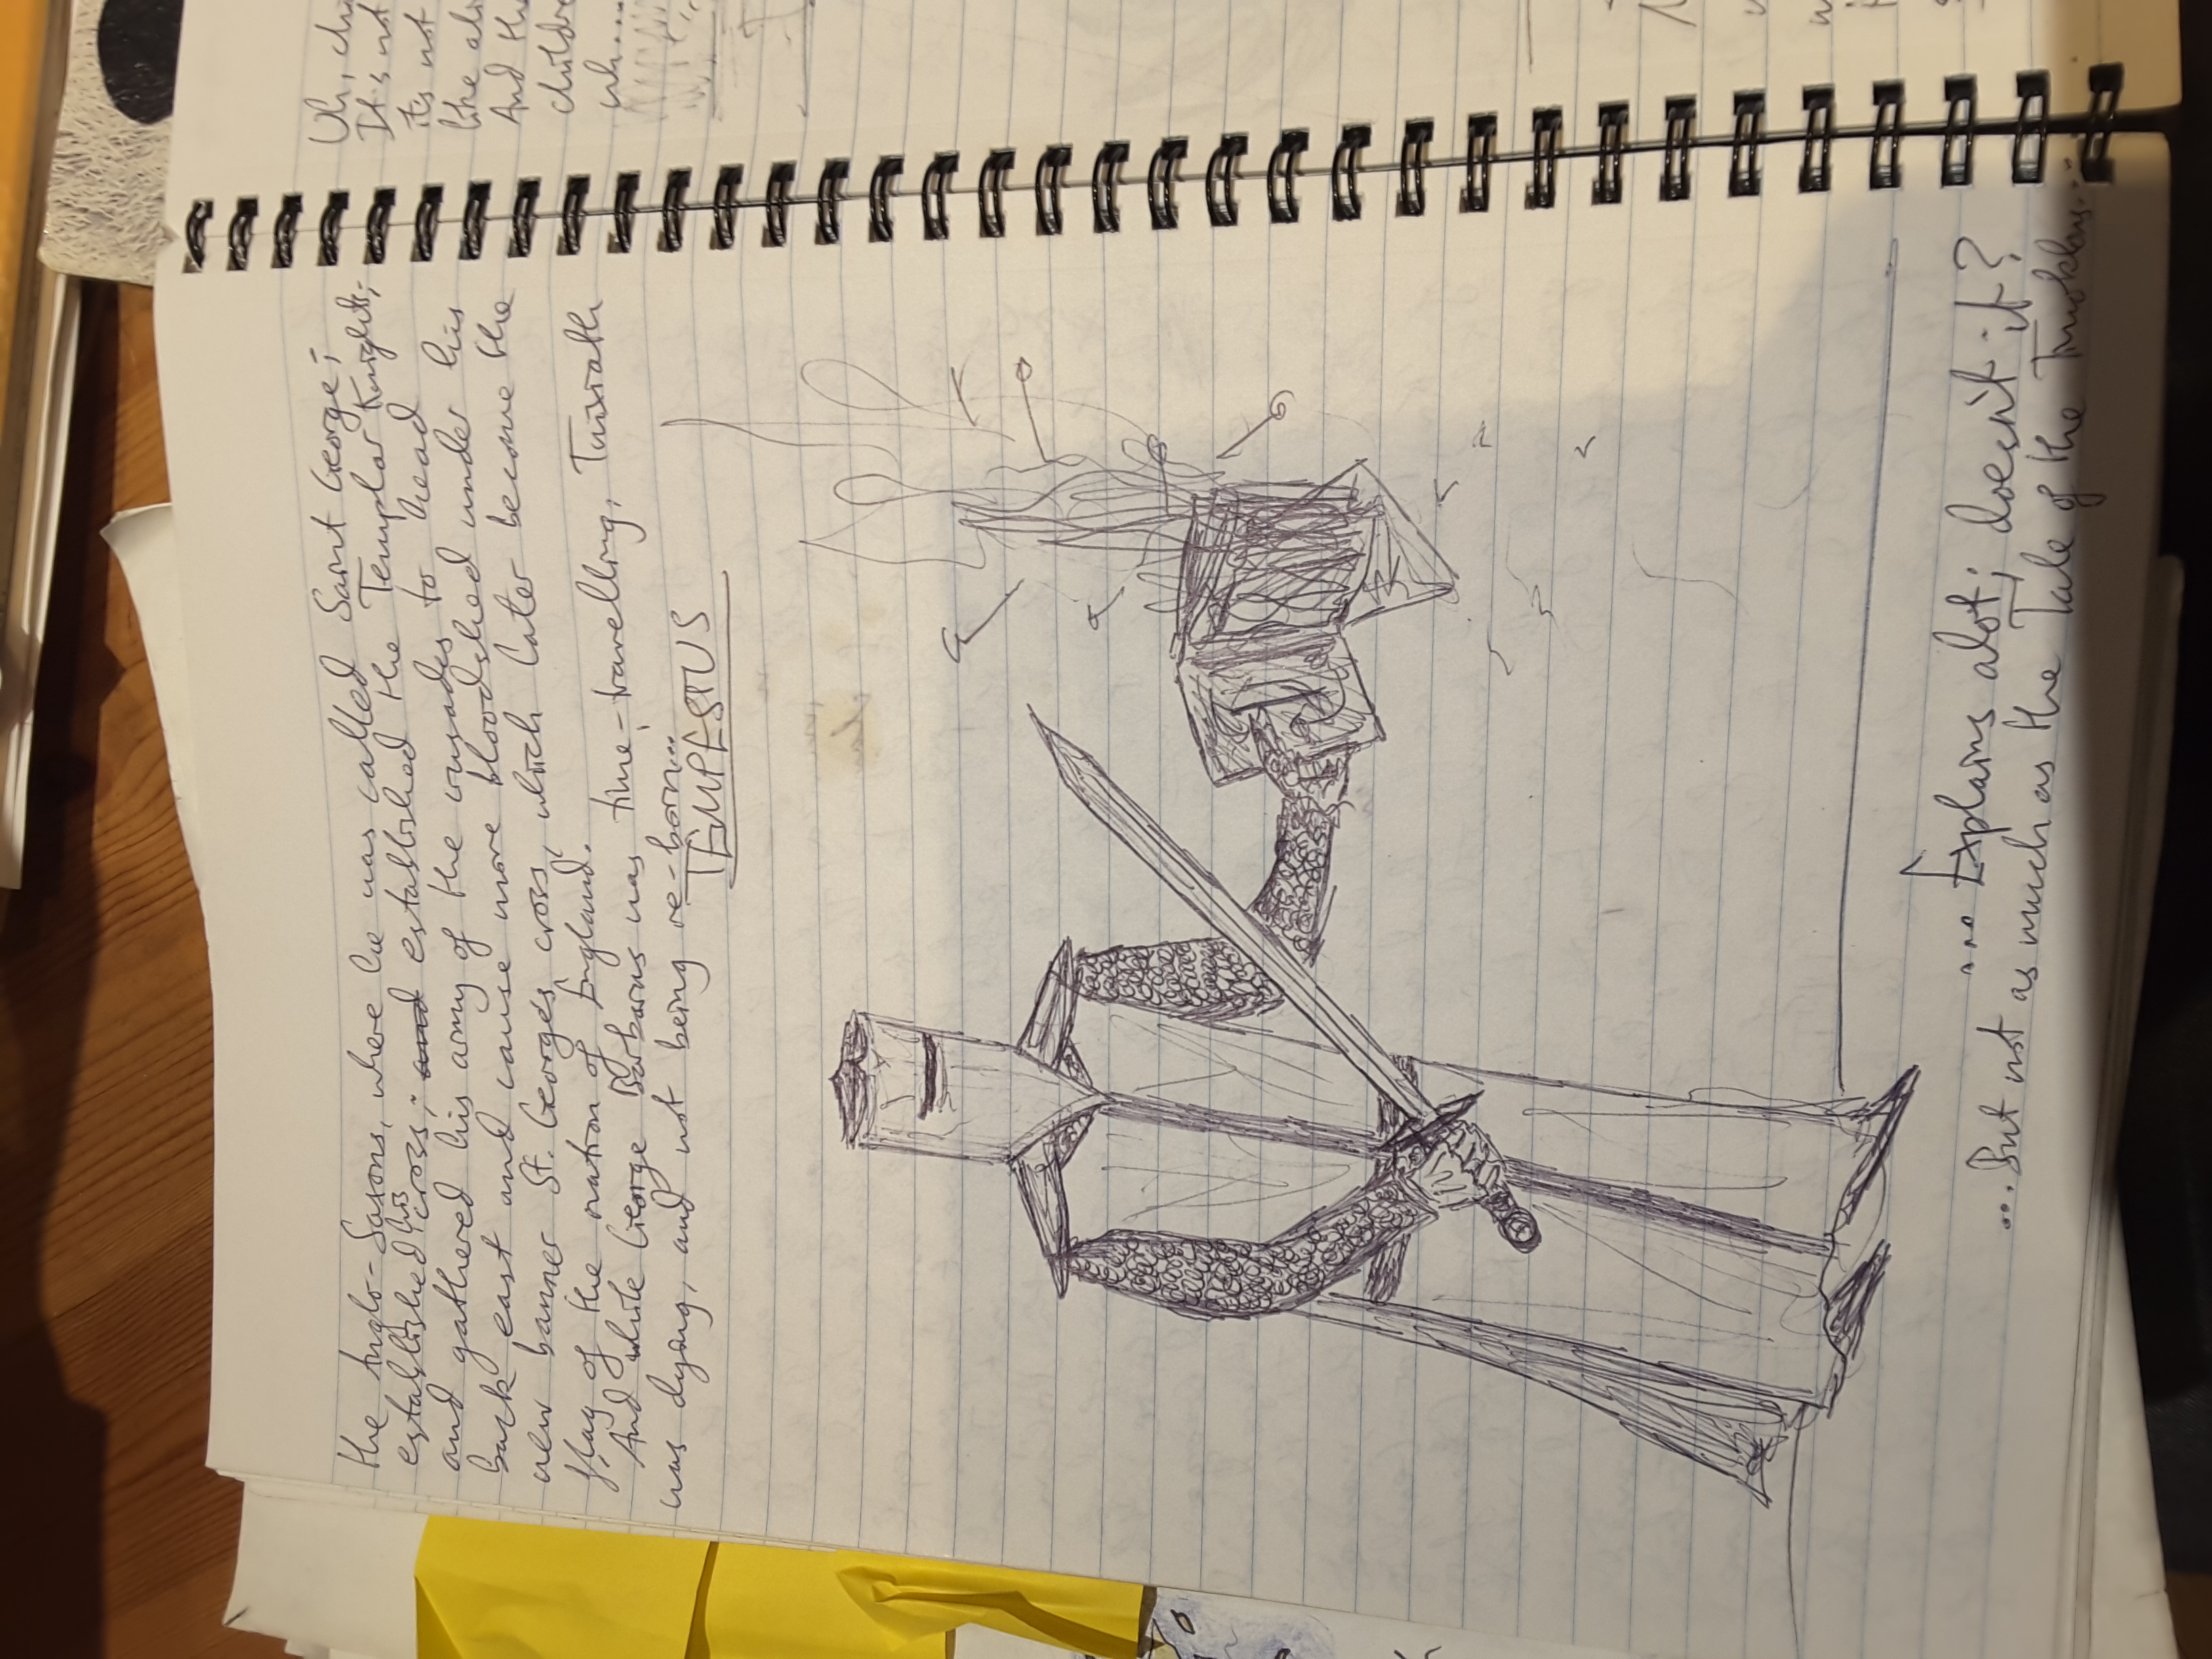 the Anglo-Saxons, where he was called Saint George;
established his cross; and established the Templar Knights;
and gathered his army of the crusades to head
back east and cause more bloodshed under his
new banner St. George's cross, which later become the
flag of the nation of England.
And while George Barbarus was time-travelling,
was dying, and not being re-born...
TEMPESTUS
... Explains alot; doesn't it?
...But not as much as the Tale of the
Uh,
It's not
it's not
like
And
uh....